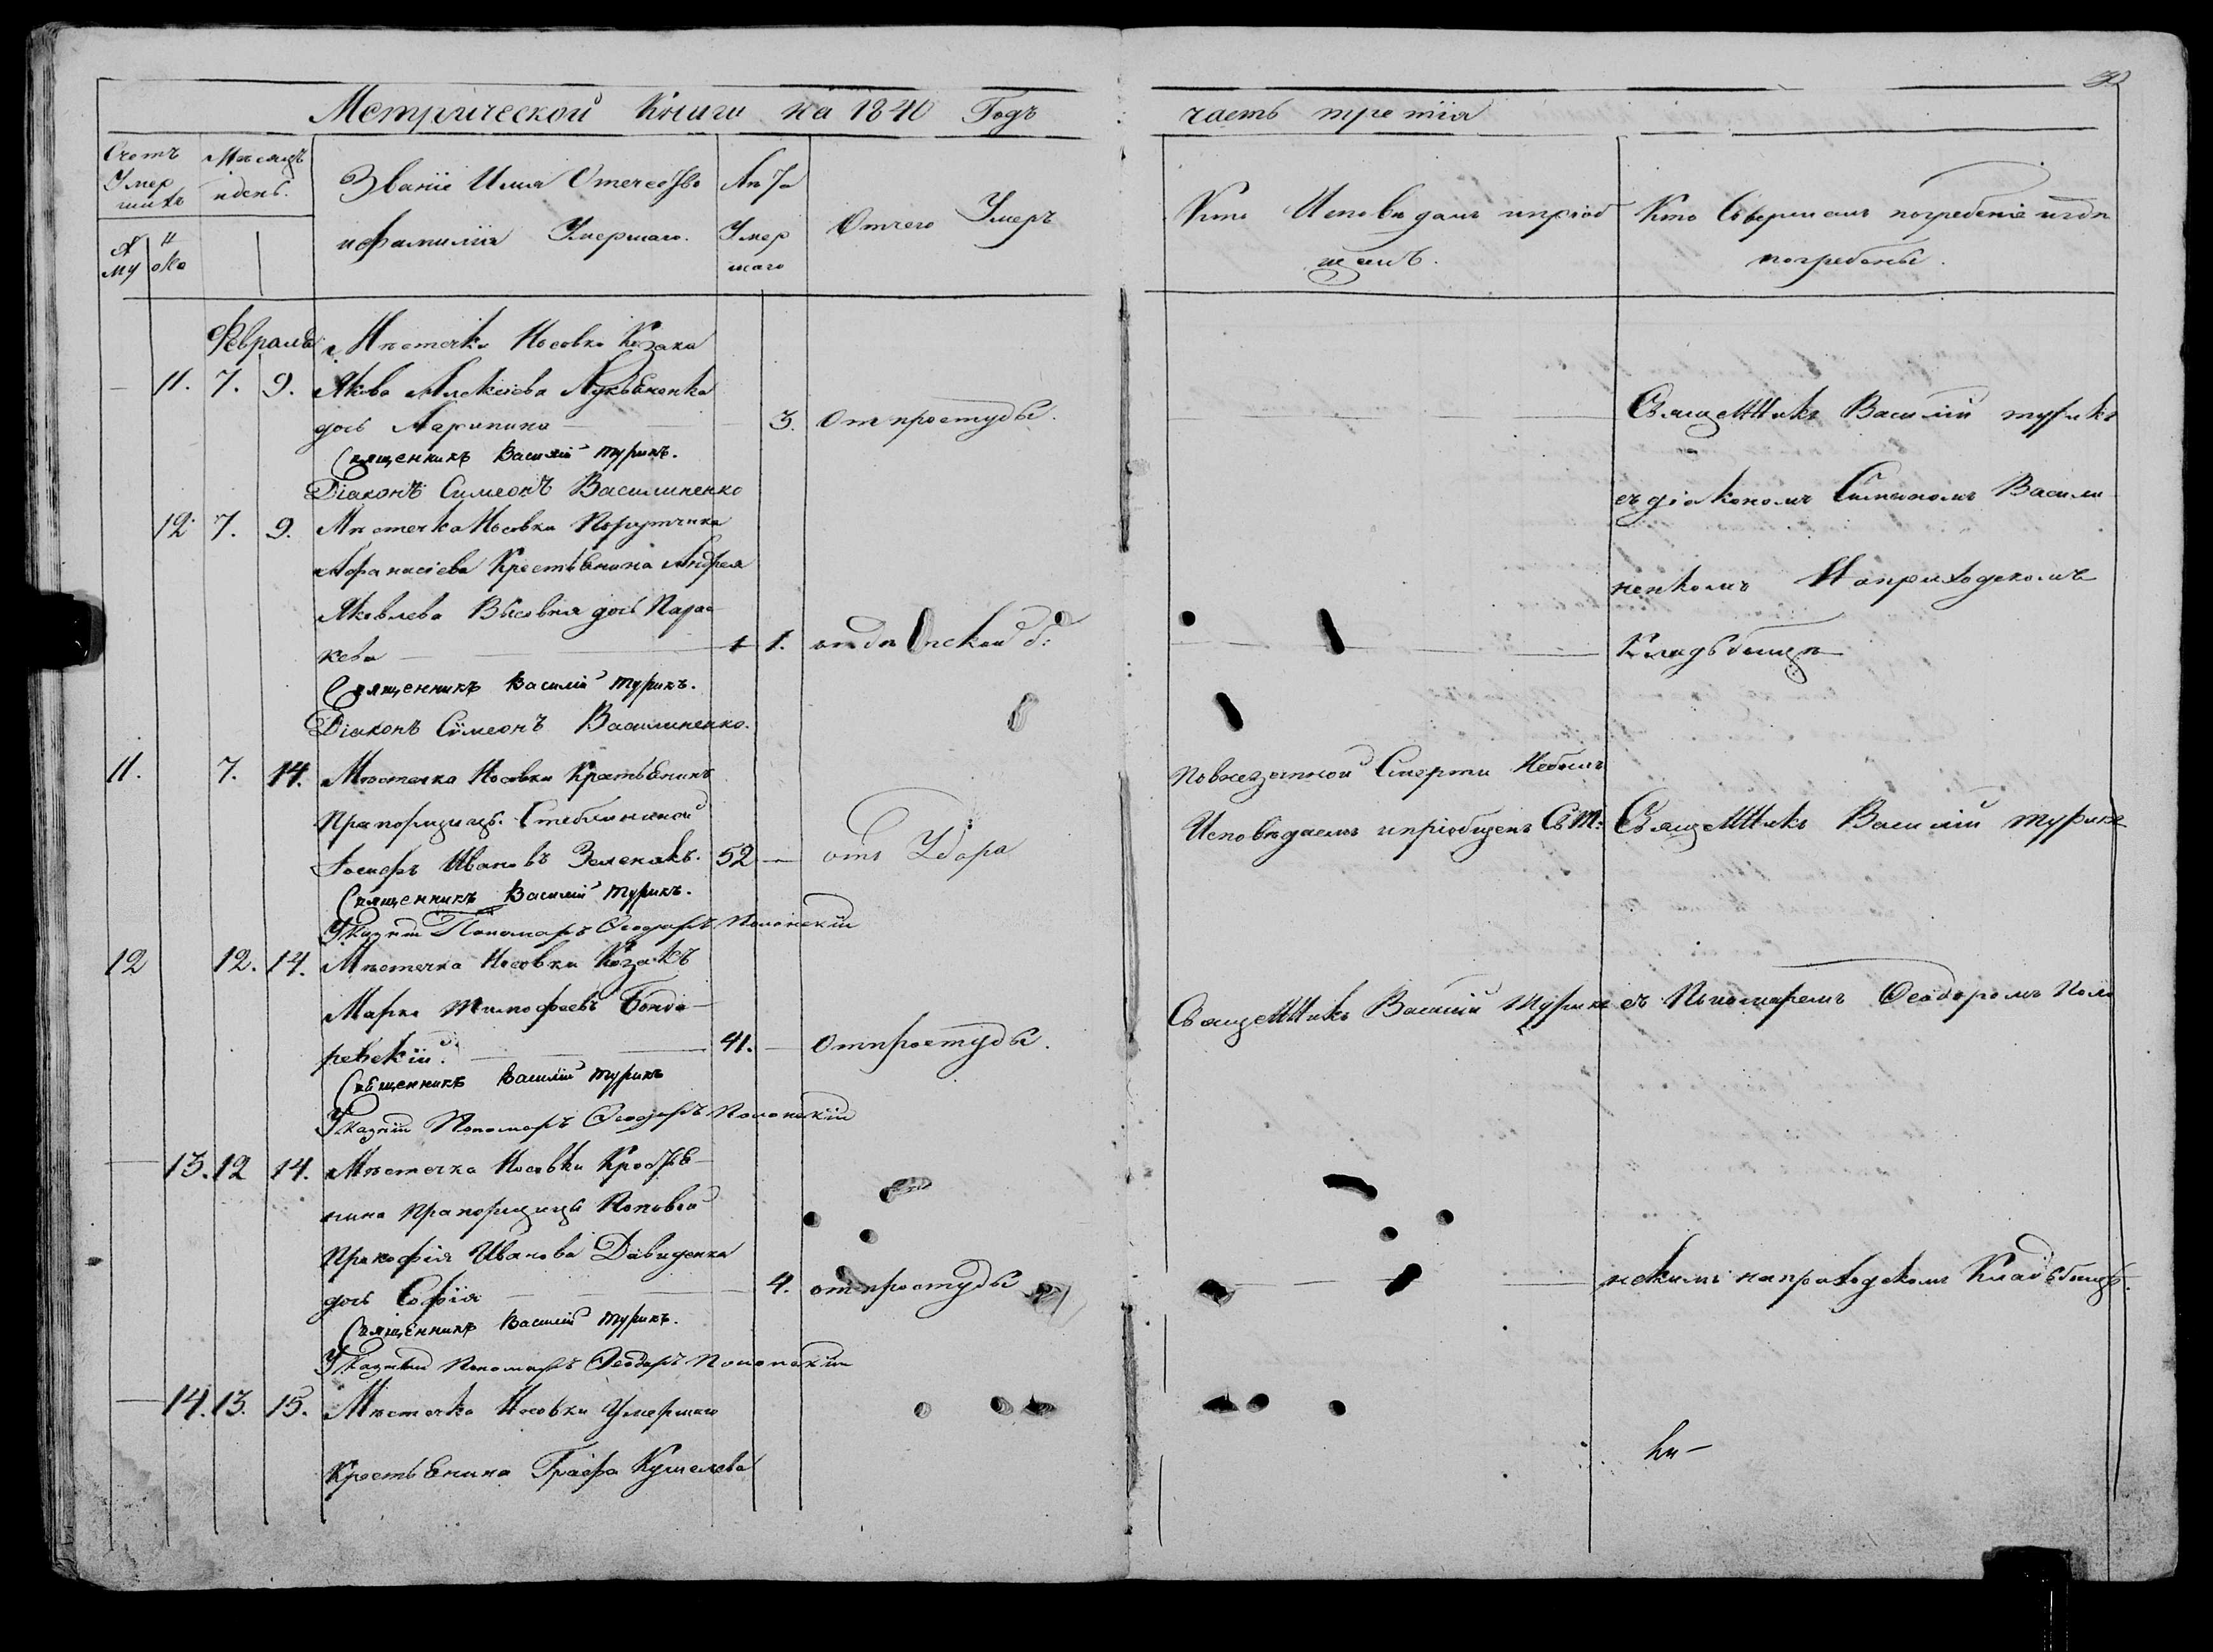 Метрической Книги на 1840 Годъ часть третія
Счетъ Умершихъ
Мѣсяцъ и день.
Званіе Имя Отечество
и фамилія Умершаго.
Лѣта
Умершаго
Отчего Умеръ
Кто Исповѣдалъ и пріобщалъ.
Кто Совершалъ погребеніе и гдѣ
погребены.
Февраль Мѣстечка Носовки Козака
11. 7. 9. Якова Алексіева
дочь 3. От простуды. Священникъ Василій Турикъ
Священникъ Василій Турикъ.
Діаконъ Симеонъ Василиненко съ діакономъ Симеономъ Васили
12. 7. 9. Мѣстечка Носовки Порутчика
Афанасіева Крестьянина Андрея ненкомъ На приходскомъ
Яковлева дочь Парас
кева 1. Кладьбищѣ
Священникъ Василій Турикъ.
Діаконъ Симеонъ Василиненко.
11. 7. 14. Мѣстечка Носовки Крестьянинъ По внезапной Смерти Небылъ
Прапорщицы Стеблинской Исповѣдаемъ и пріобщенъ Св.Т: Священникъ Василій Турикъ
Іосифъ Ивановъ 52 отъ Удара
Священникъ Василій Турикъ.
Указній Пономарь Феодоръ Полонскій
12 12. 14. Мѣстечка Носовки Козакъ
Марко Тимофеевъ Бонда- Священникъ Василій Турикъ съ Пономаремъ Феодоромъ Поло
ревскій. 41. От простуды.
Священникъ Василій Турикъ
Указній Пономарь Феодоръ Полонскій
13. 12 14. Мѣстечка Носовки Крестья-
нина Прапорщицы Поповой
Прокофія Иванова Давиденка
дочь Софія 4. от простуды нскимъ на приходскомъ Кладьбищѣ.
Священникъ Василій Турикъ.
Указный Пономарь Феодоръ Полонскій
14. 13. 15. Мѣстечка Носовки Умершаго
Крестьянина Графа Кушелева